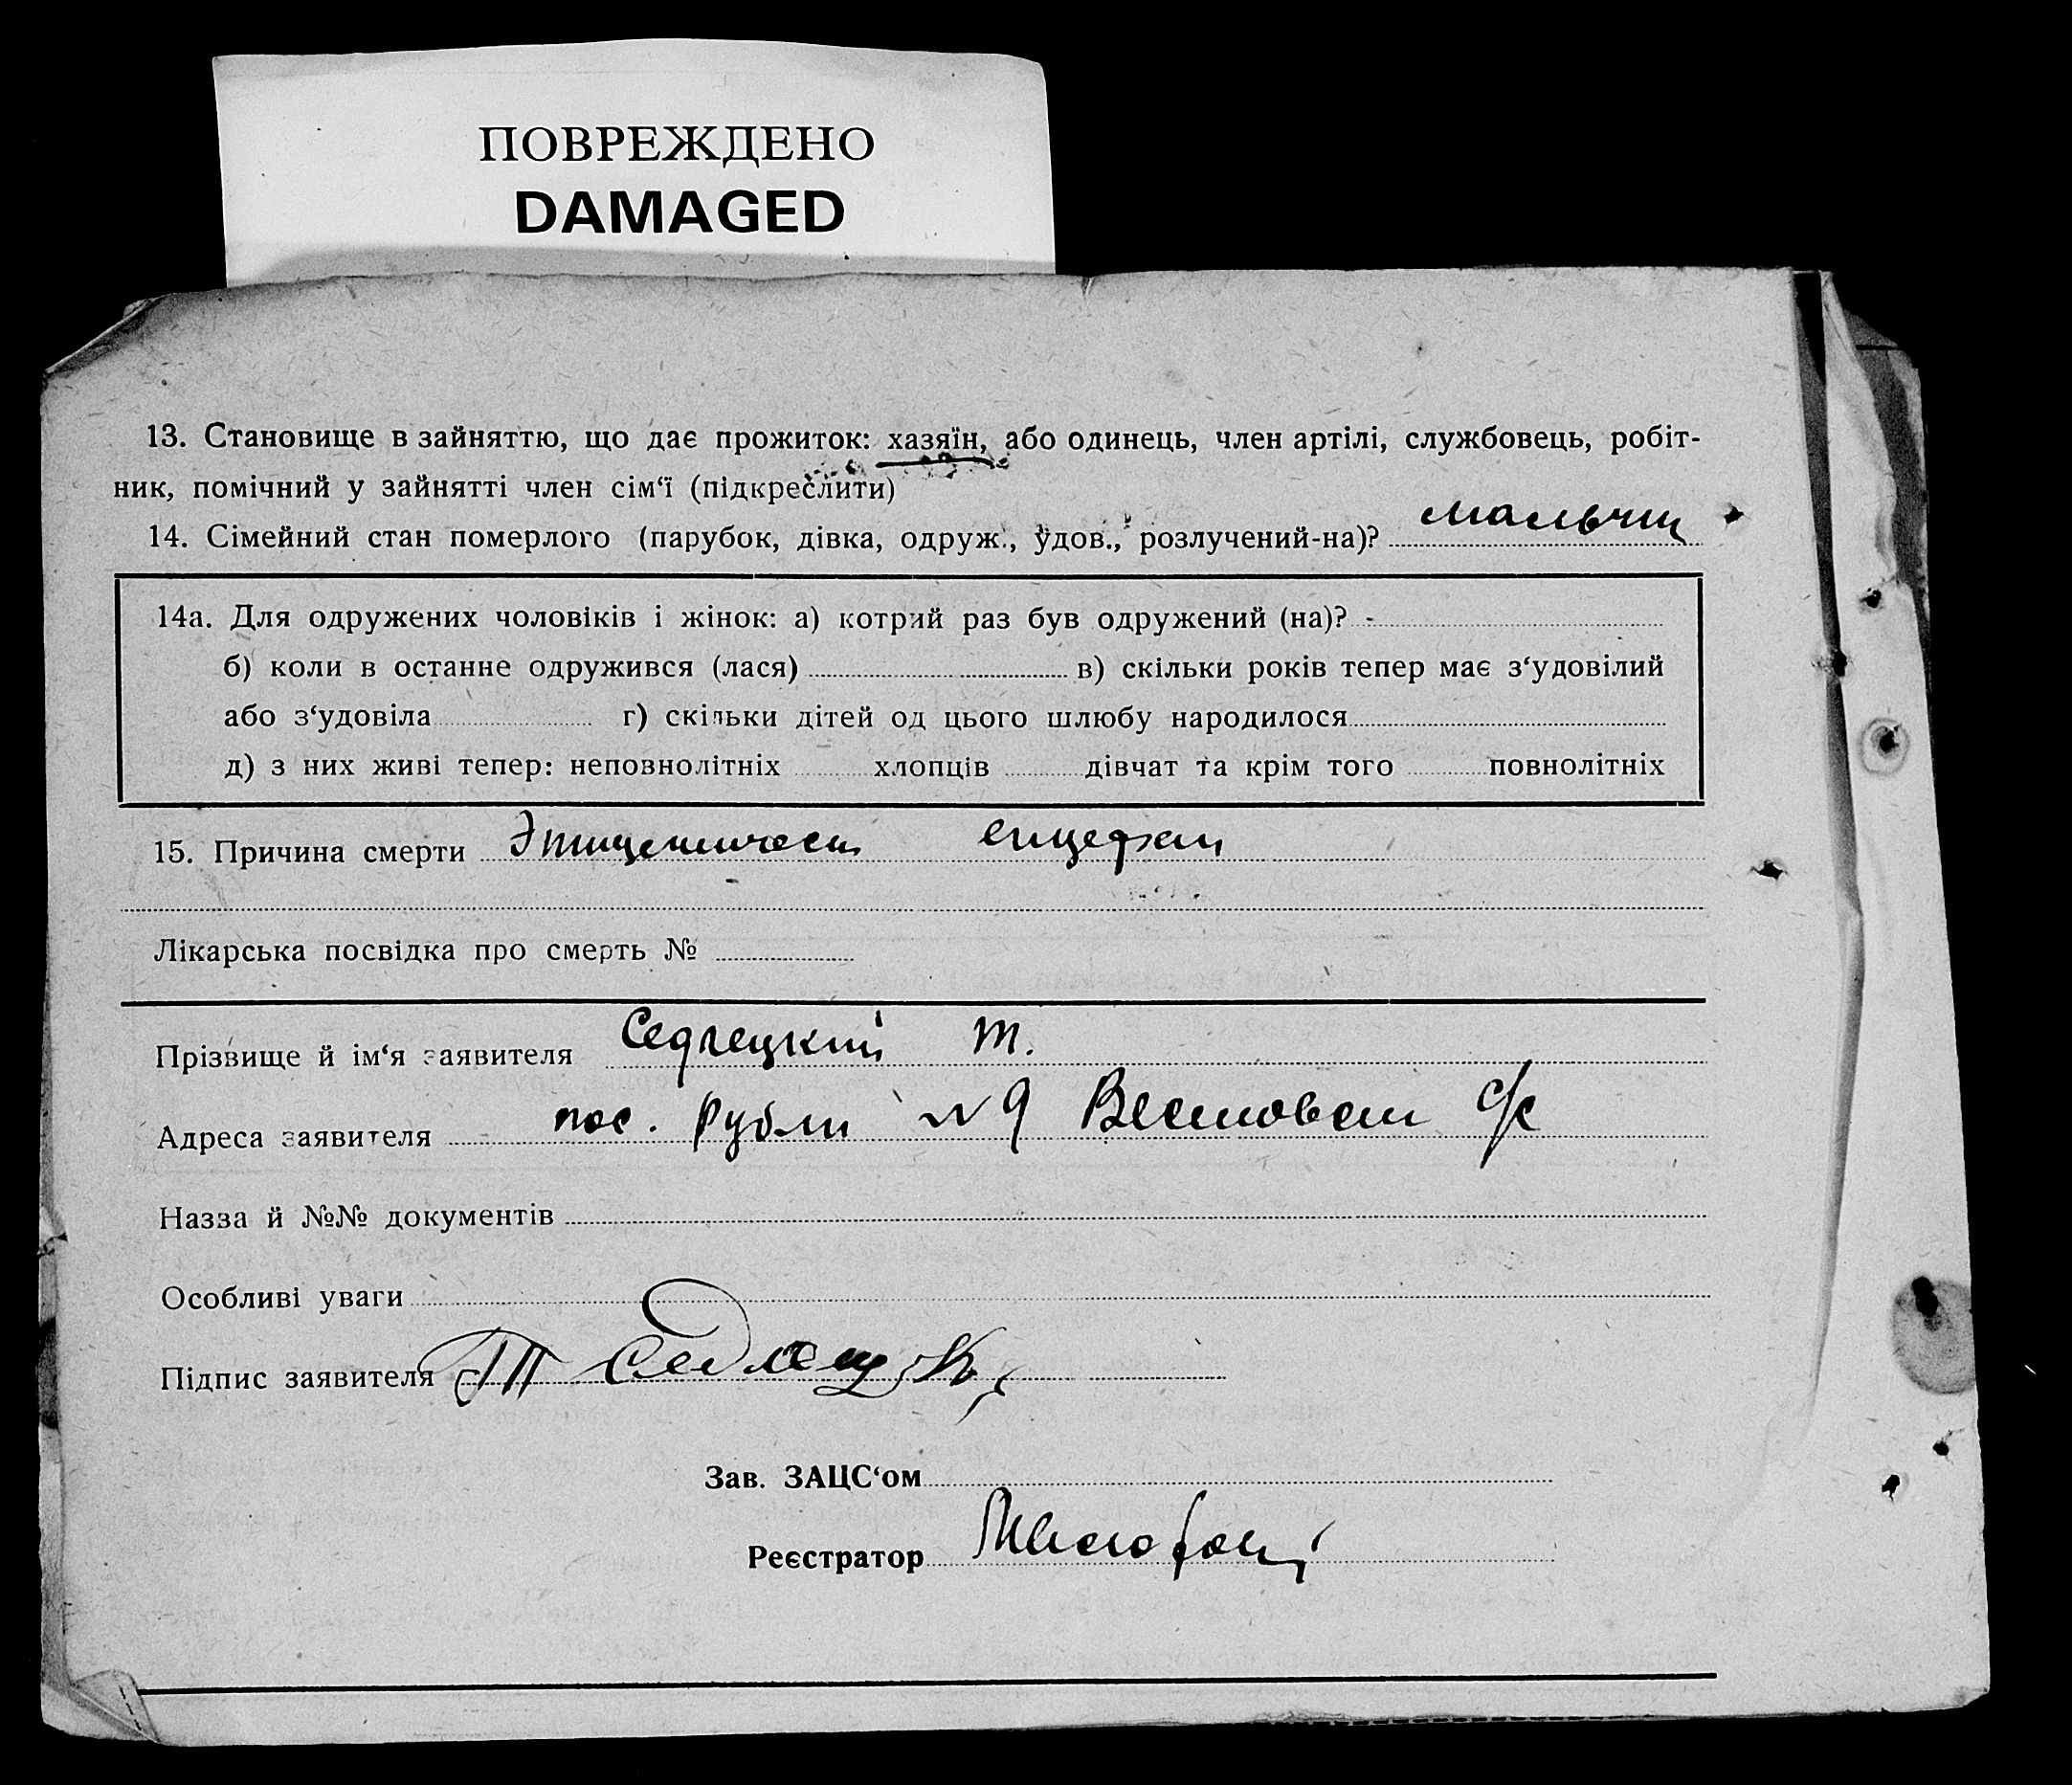 ПОВРЕЖДЕНО
DAMAGED
13. Становище в зайняттю, що дає прожиток: хазяїн, або одинець, член артілі, службовець, робіт-
ник, помічний у зайнятті член сім‘ї (підкреслити)
14. Сімейний стан померлого (парубок, дівка, одруж., удов., розлучений-на)? мальчик
14а. Для одружених чоловіків і жінок: а) котрий раз був одружений (на)? -
б) коли в останне одружився (лася) в) скільки років тепер має з‘удовілий
або з‘удовіла г) скільки дітей од цього шлюбу народилося
д) з них живі тепер: неповнолітніх хлопців дівчат та крім того повнолітніх
15. Причина смерти енцефал
Лікарська посвідка про смерть №
Прізвище й ім‘я заявителя Седлецкий Т.
Адреса заявителя пос. №9 с/с
Назва й №№ документів
Особливі уваги
Підпис заявителя Т Седлецк
Зав. ЗАЦС‘ом
Реєстратор